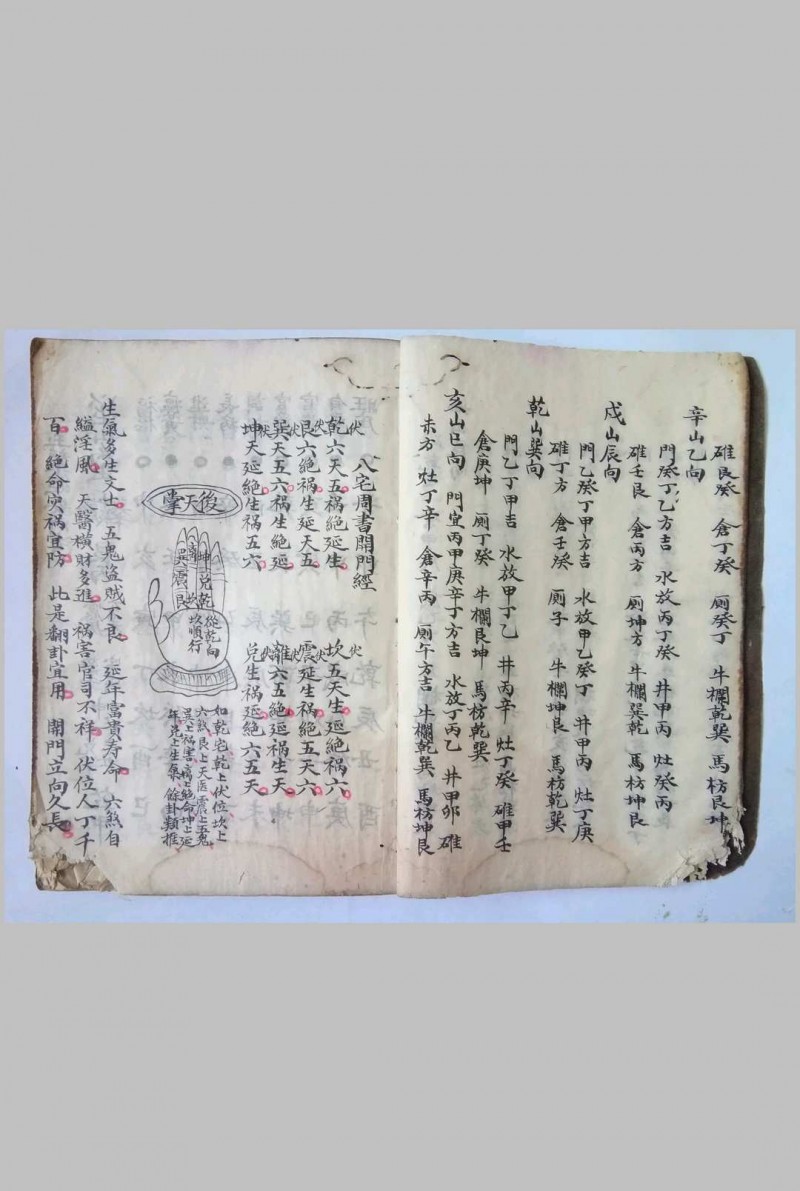 碓艮癸　倉丁癸　厠癸丁　牛欄乾巽　馬枋艮坤
辛山乙向
門癸丁乙方吉　水放丙丁癸　井甲丙　灶癸丙
碓壬艮　倉丙方　厠坤方　牛欄巽乾　馬枋坤艮
戍山辰向
門乙癸丁甲方吉　水放甲乙癸丁　井甲丙　灶丁庚
碓丁方　倉壬癸　厠子　牛欄坤艮　馬枋乾巽
乾山巽向
門乙丁甲吉　水放甲丁乙　井丙辛　灶丁癸　碓甲壬
倉庚坤　厠丁癸　牛欄艮坤　馬枋乾巽
亥山巳向　門宜丙甲庚辛丁方吉　水放丁丙乙　井甲卯　碓
未方　灶丁辛　倉辛丙　厠午方吉　牛欄乾巽　馬枋坤艮
八宅周書開門經
乾伏六天五禍絶延生　坎伏五天生延絶禍六
艮伏六絶禍生延天五　震伏延生禍絶五天六
巽伏天五六禍生絶延　離伏六五絶延禍生天
坤伏天延絶生禍五六　兌伏生禍延絶六五天
後天掌
離坤兌乾
巽震艮坎
從乾向
坎順行
如乾宅乾上伏位坎上
六煞艮上天医震上五鬼
巽上禍害离上絶命坤上延
年兌上生氣餘卦類推
生氣多生文士　五鬼盜賊不良　延年富貴寿命　六煞自
縊淫風　天醫横財多進　禍害官司不祥　伏位人丁千
百　絶命灾禍宜防　此是翻卦宜用　開門立向久長